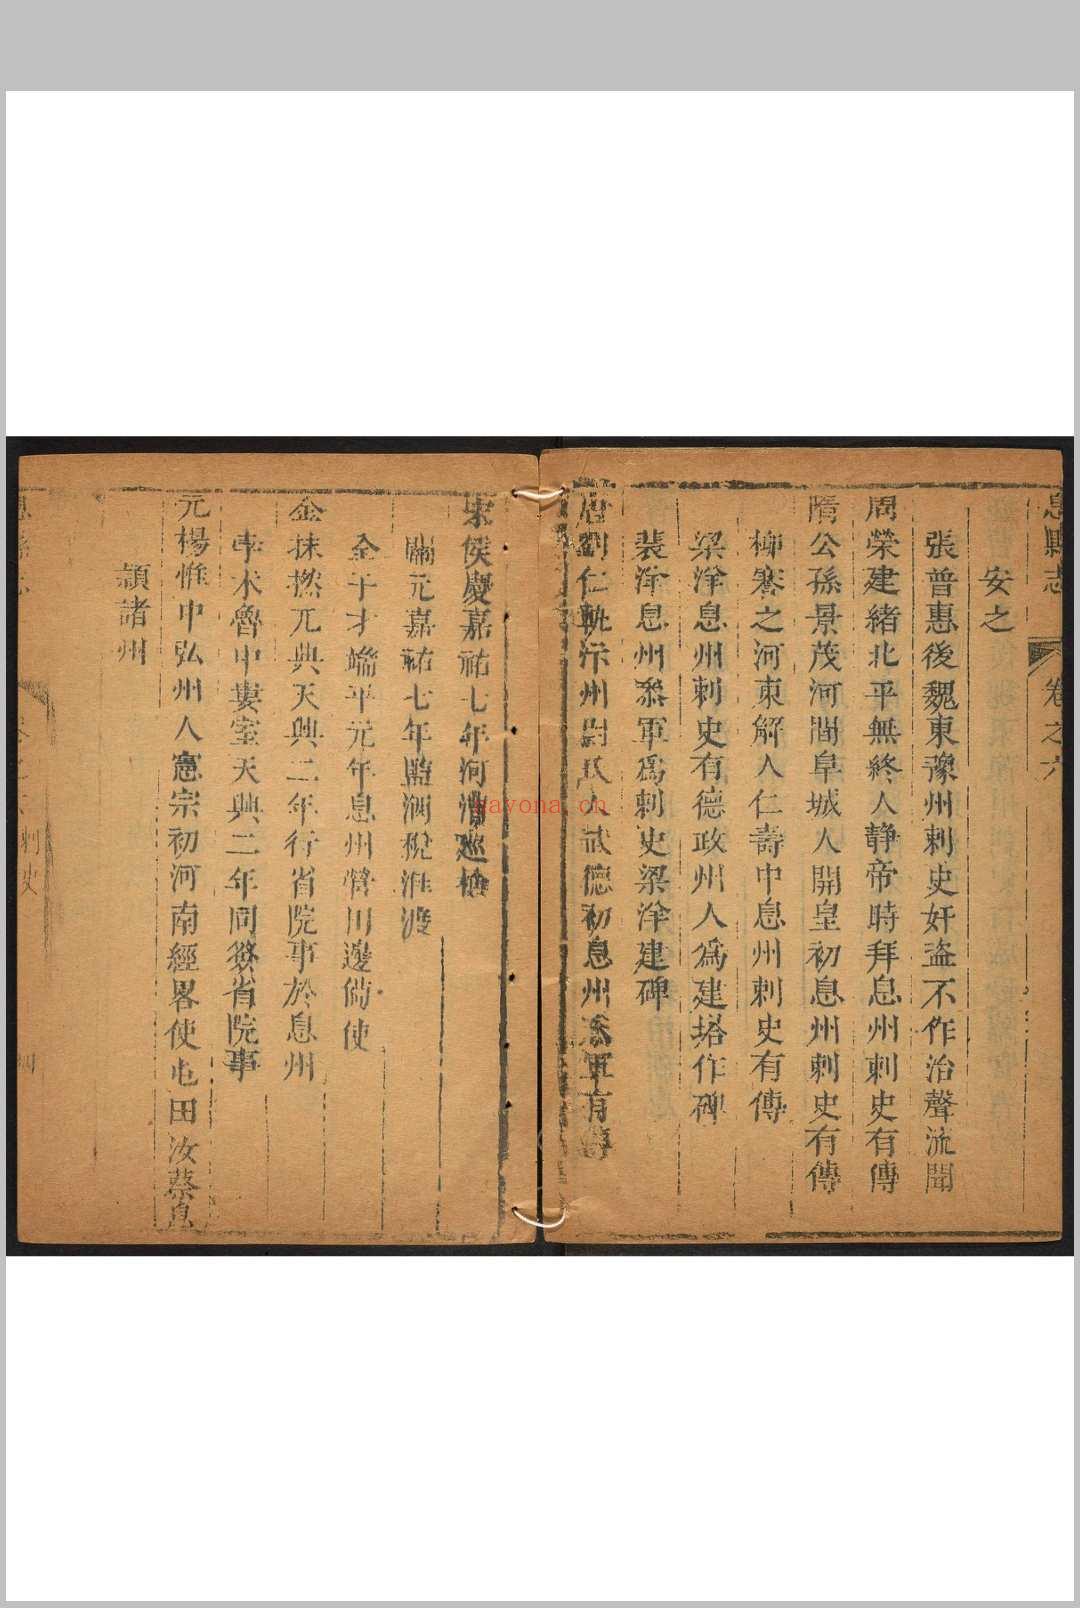 息縣志
卷之六
安之
張普惠後魏東豫州刺史奸盜不作治聲流聞
周榮建緒北平無終人靜帝時拜息州刺史有傳
隋公孫景茂河間阜城人開皇初息州刺史有傳
柳謇之河東解人仁壽中息州刺史有傳
梁洋息州刺史有德政州人爲建塔作碑
裴洋息州叅軍爲刺史梁洋建碑
唐劉仁軌汴州尉氏人武德初息州叅軍有傳
宋侯慶嘉祐七年河漕廵檢
關元嘉祐七年監洞稅淮渡
全于才端平元年息州管川邊餉使
金抹撚兀典天興二年行省院事於息州
孛术魯中婁室天興二年同簽省院事
元楊惟中弘州人憲宗初河南經畧使屯田汝蔡息
潁諸州
息縣志
刺史
四
yayona.cn